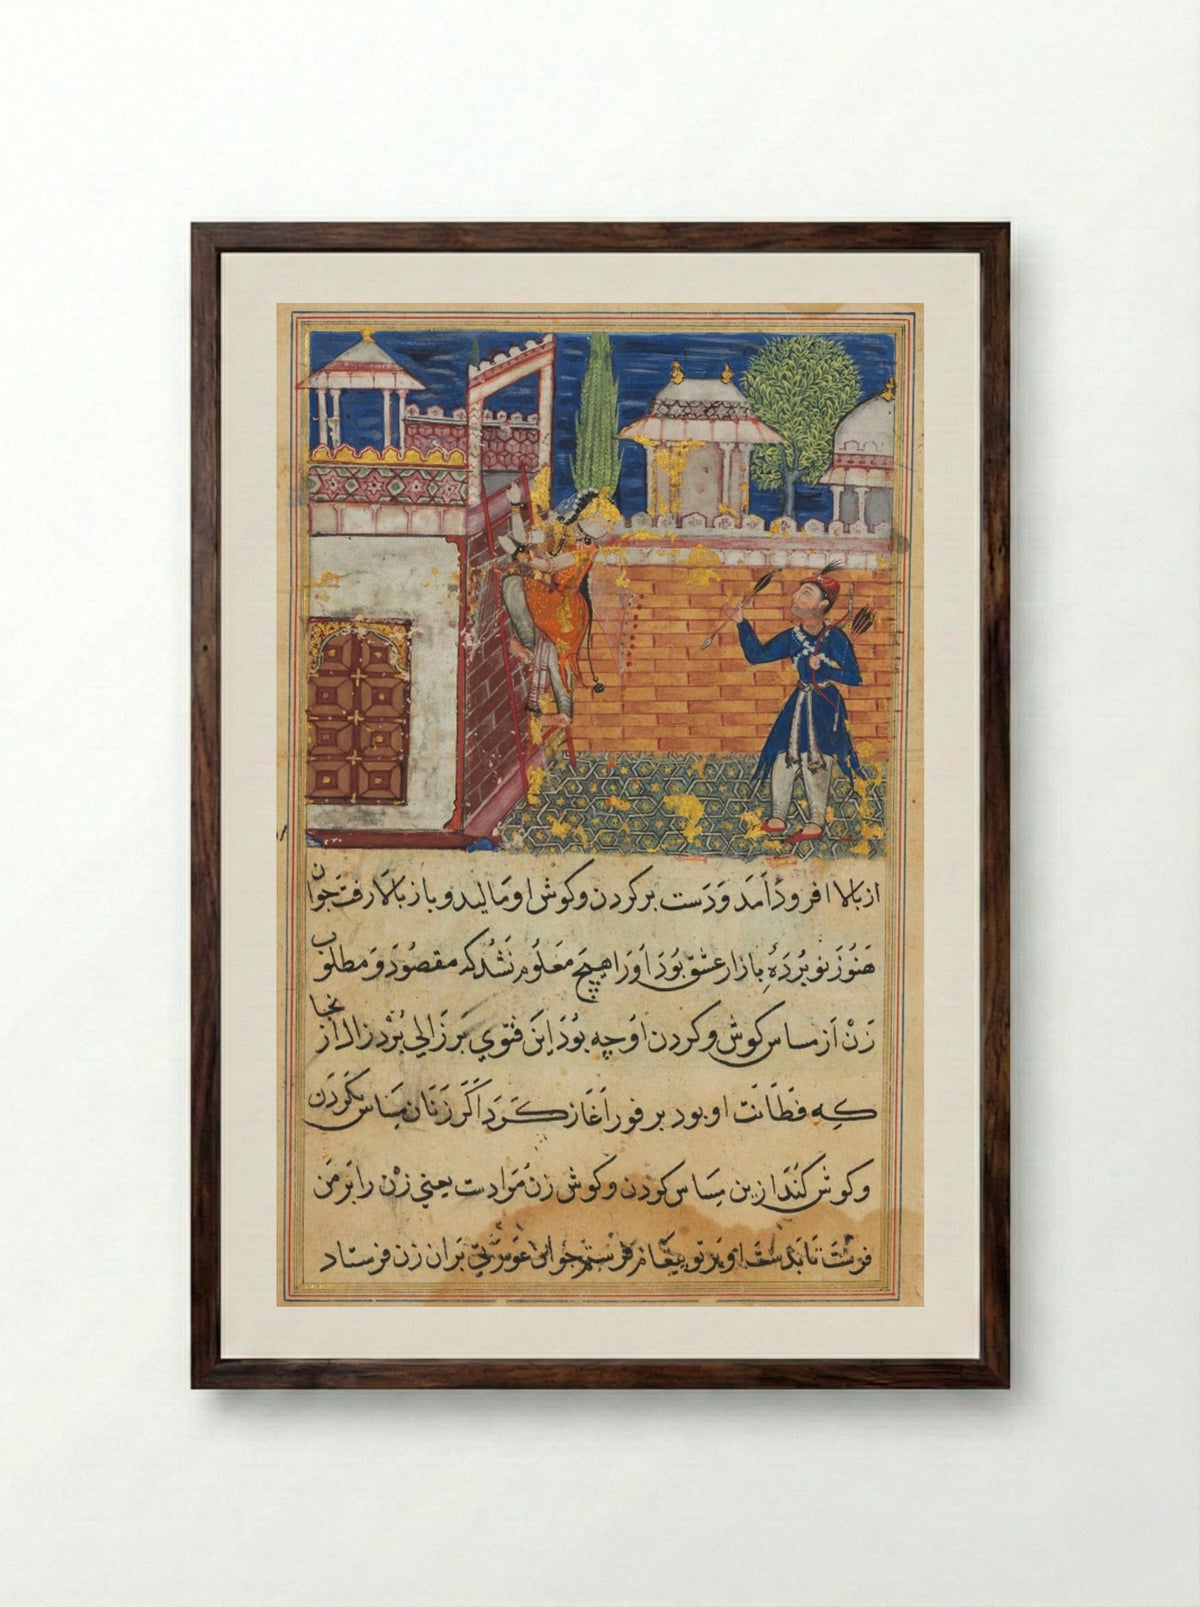 از بالا افرود آمد و دست بر کردن و کوش او مالید و باز بالا رفت جوان
هنوز نو برده بازار عشق بود اورا هیچ معلوم نشد که مقصود و مطلوب
زن از مساس کوش و کردن او چه بود این فتوی بر زالی برد زال از نجا
که فطانت او بود بر فور آغاز کرد اکر زنان مساس کردن
و کوش کنند ازین مساس کردن و کوش زن مرادست یعنی زن را بر من
فرست تا بدست او بر تو پیغام فرستم جوان عورتی بران زن فرستاد